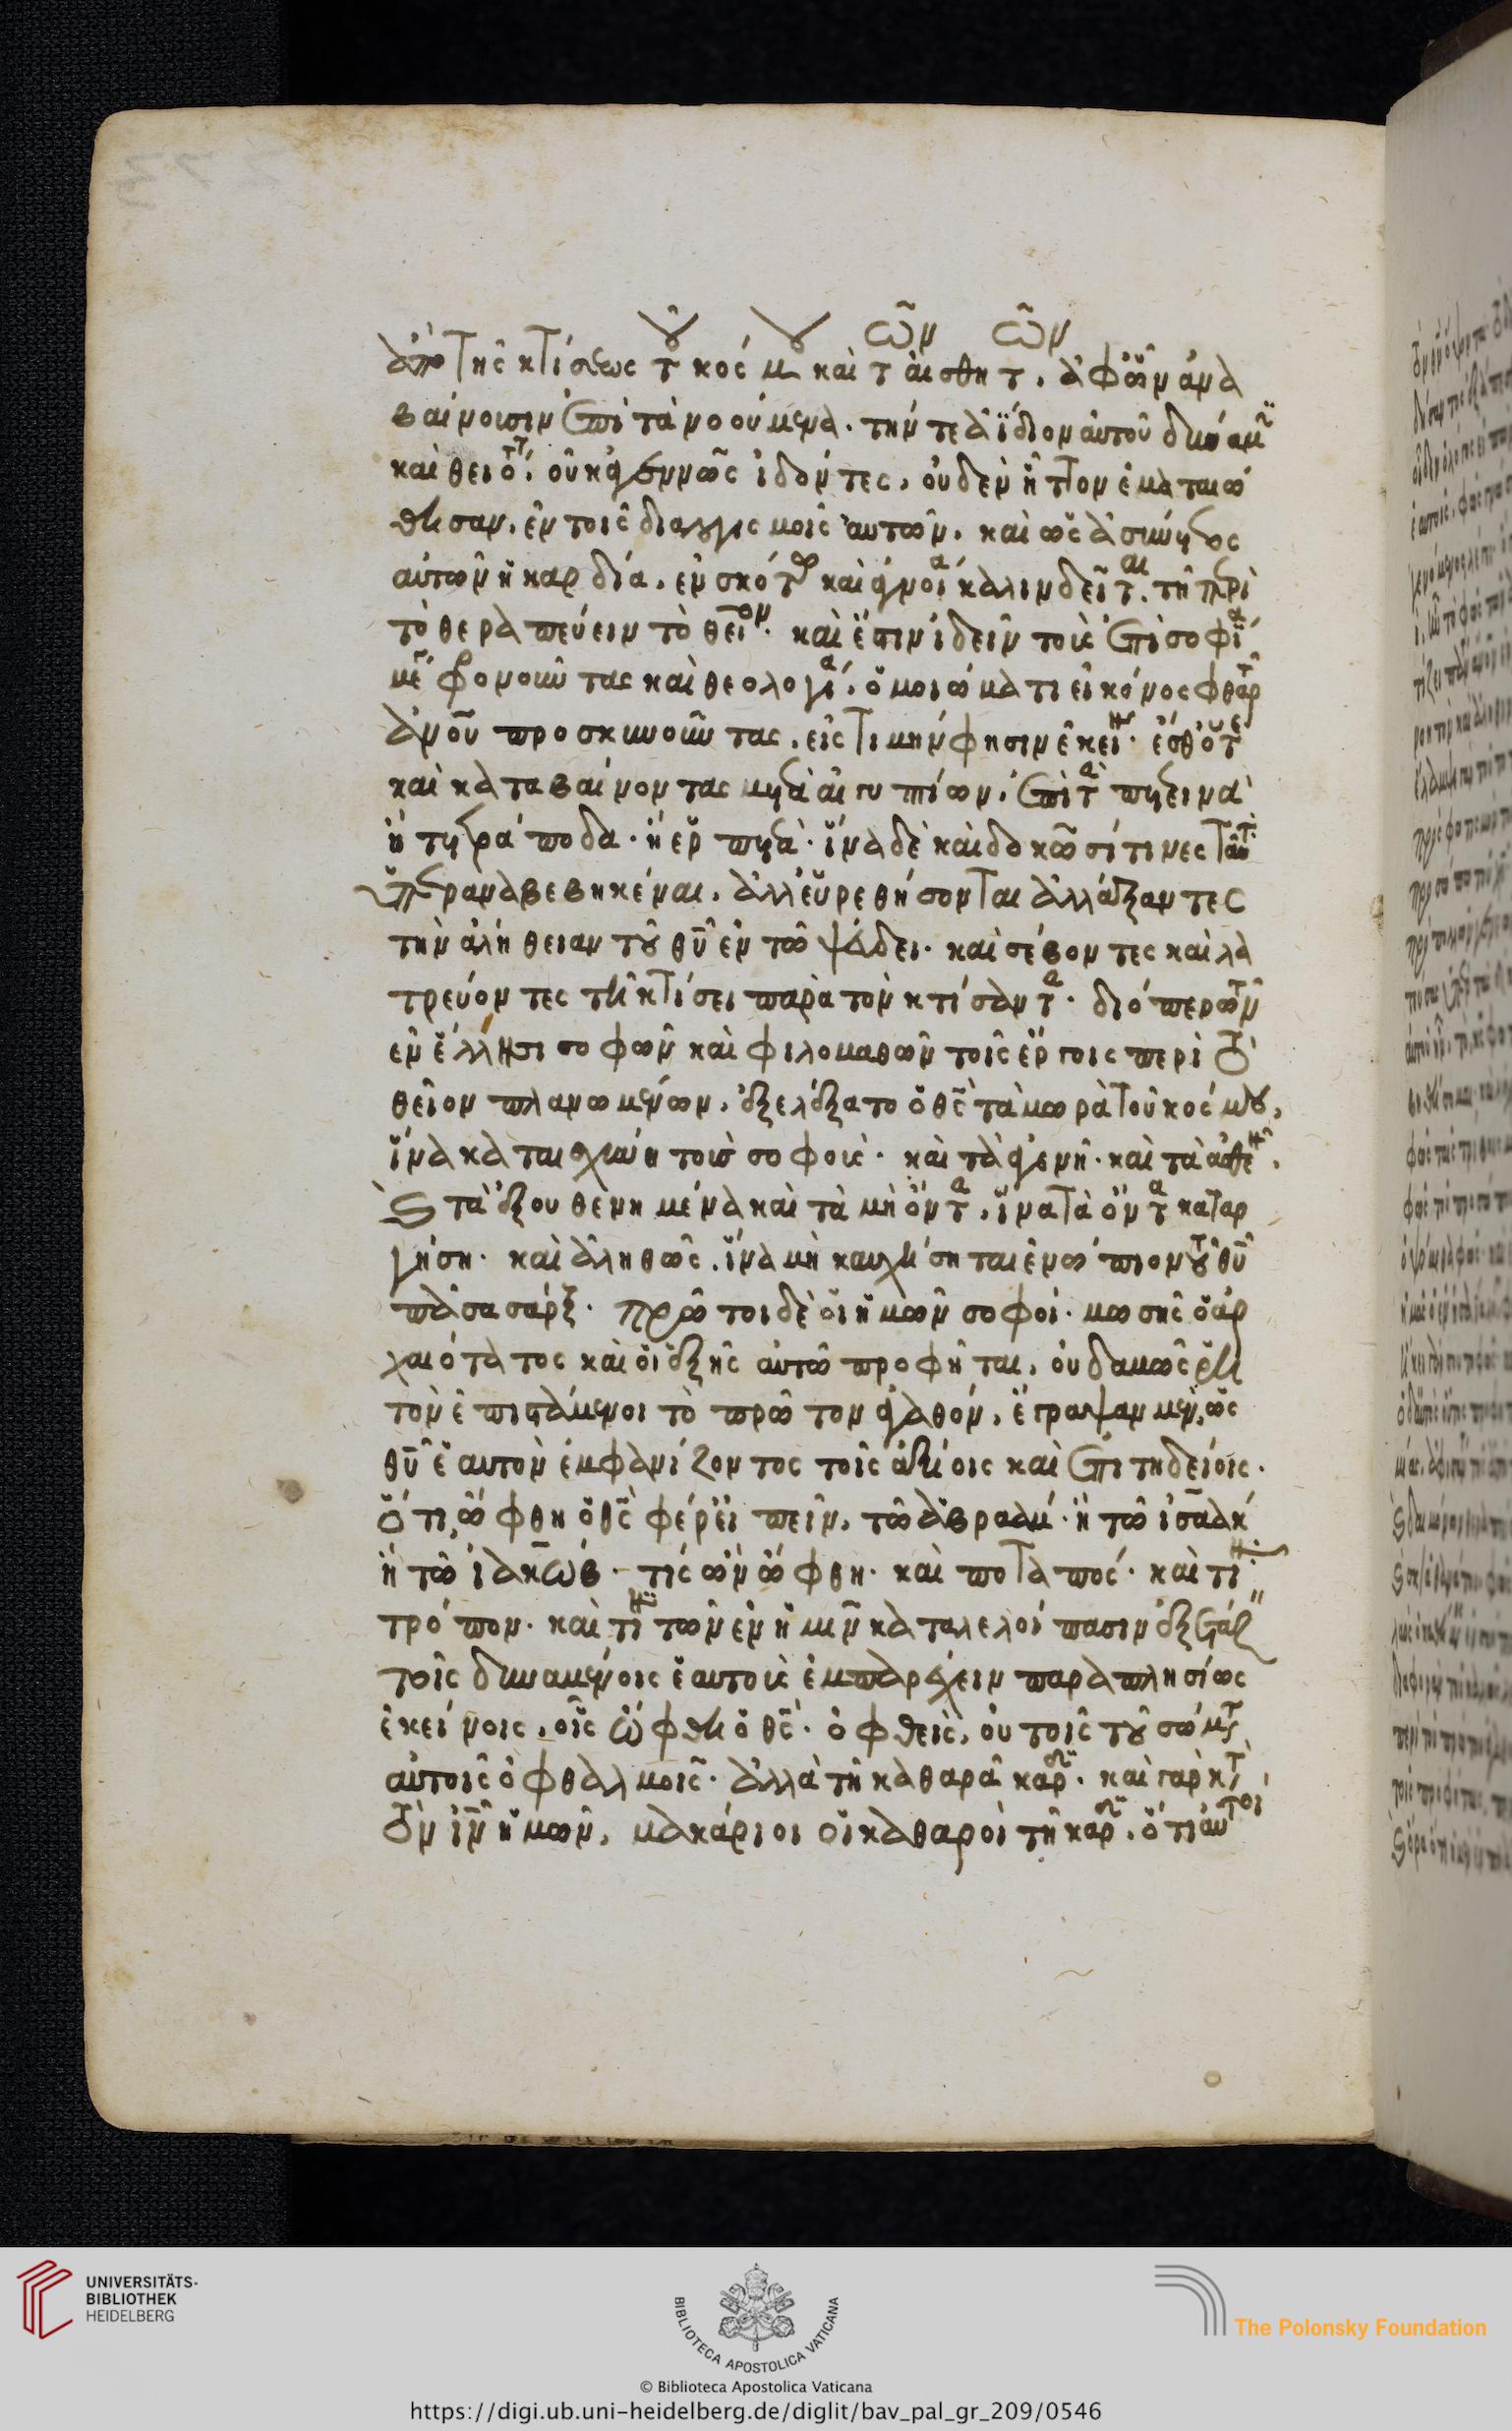 ἀπὸ τῆς κτίσεως τοῦ κόσμου καὶ τῶν αἰσθητῶν, ἀφ' ὧν ἀνα
βαίνουσιν ἐπὶ τὰ νοούμενα. τήν τε ἀΐδιον αὐτοῦ δύναμιν
καὶ θειότητα οὐκ ἀγεννῶς ἰδόντες, οὐδὲν ἧττον ἐματαιώ
θησαν, ἐν τοῖς διαλογισμοῖς αὐτῶν, καὶ ὡς ἀσύνετος
αὐτῶν ἡ καρδία, ἐν σκότω καὶ ἀγνοία καλινδεῖται, τῆ περὶ
τὸ θεραπεύειν τὸ θεῖον. καὶ ἔστιν ἰδεῖν τοὺς ἐπὶ σοφία
μέγα φρονοῦντας καὶ θεολογία, ὁμοιώματι εἰκόνος φθαρτοῦ
ἀνοῦ προσκυνοῦντας, εἰς τιμήν φησιν ἐκείνου. ἔσθ' ὅτε
καὶ καταβαίνοντας μετὰ αἰγυπτίων, ἐπὶ τὰ πετεινὰ
ἢ τετράποδα. ἢ ἑρπετά. ἵνα δὲ καὶ δοκῶσί τινες ταῦτα
ὑπεραναβεβηκέναι, ἀλλ' εὑρεθήσονται ἀλλάξαντες
τὴν ἀλήθειαν τοῦ θῦ ἐν τῶ ψεύδει. καὶ σέβοντες καὶ λα
τρεύοντες τῆ κτίσει παρὰ τὸν κτίσαντα. διόπερ τῶν
ἐν ἕλλησι σοφῶν καὶ φιλομαθῶν τοῖς ἔργοις περὶ τὸ
θεῖον πλανωμένων, ἐξελέξατο ὁ θς τὰ μωρὰ τοῦ κόσμου,
ἵνα καταισχύνη τοὺς σοφούς. καὶ τὰ ἀγενῆ. καὶ τὰ ἀσθενῆ.
καὶ τὰ ἐξουθενημένα καὶ τὰ μὴ ὄντα, ἵνα τὰ ὄντα καταρ
γήση. καὶ ἀληθῶς, ἵνα μὴ καυχήσηται ἐνώπιον τοῦ θῦ
πᾶσα σάρξ. πρῶτοι δὲ οἱ ἡμῶν σοφοί. μωσῆς ὁ ἀρ
χαιότατος καὶ οἱ ἑξῆς αὐτῶ προφῆται, οὐδαμῶς ῥη
τὸν ἐπιστάμενοι τὸ πρῶτον ἀγαθόν, ἔγραψαν μέν, ὡς
θῦ ἑαυτὸν ἐμφανίζοντος τοῖς ἀξίοις καὶ ἐπιτηδείοις.
ὅτι ὤφθη ὁ θς φέρ' εἰπεῖν, τῶ ἀβραάμ. ἢ τῶ ἰσαὰκ
ἢ τῶ ἰακώβ. τίς ὢν ὤφθη. καὶ ποταπός. καὶ τίνα
τρόπον. καὶ τίνι τῶν ἐν ἡμῖν καταλελοίπασιν ἐξετάζειν
τοῖς δυναμένοις ἑαυτοὺς ἐμπαρέχειν παραπλησίως
ἐκείνοις, οἷς ὤφθη ὁ θς. ὀφθείς, οὐ τοῖς τοῦ σώματος
αὐτοῖς ὀφθαλμοῖς. ἀλλὰ τῆ καθαρᾶ καρδία. καὶ γὰρ κατὰ
τὸν ἰν ἡμῶν, μακάριοι οἱ καθαροὶ τῆ καρδία, ὅτι αὐτοὶ
UNIVERSITÄTS-
BIBLIOTHEK
HEIDELBERG
BIBLIOTECA APOSTOLICA VATICANA
© Biblioteca Apostolica Vaticana
The Polonsky Foundation
https://digi.ub.uni-heidelberg.de/diglit/bav_pal_gr_209/0546